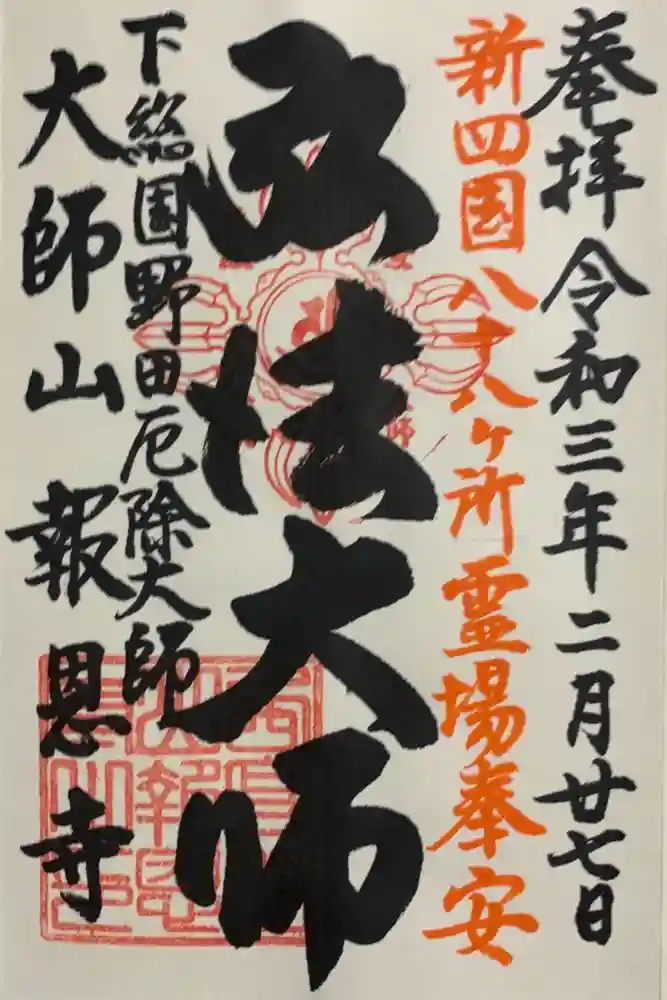 奉拝 令和三年二月廿七日
新四国八十八ヶ所霊場奉安
弘法大師
下総国野田厄除大師
大師山報恩寺